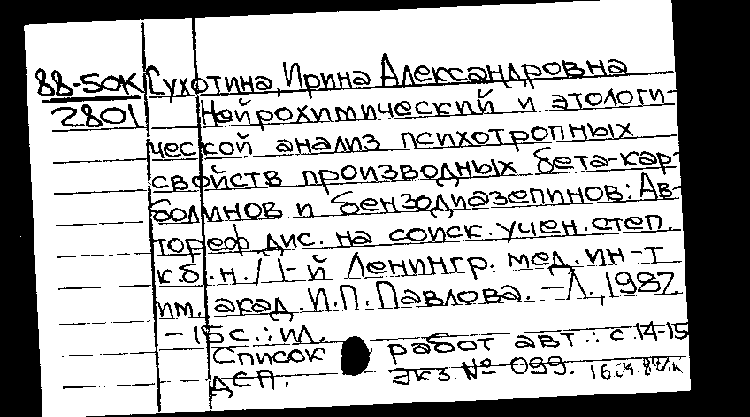 88-50К Сухотина, Ирина Александровна
2801 Нейрохимический и этологи-
ческой анализ психотропных
свойств производных бета-кар-
болинов и бензодиазепинов: Ав-
тореф. дис. на соиск. учен. степ.
к.б.н. / 1-й Ленингр. мед. ин-т
им. акад. И.П. Павлова. - Л., 1987.
- 15 с.: ил.
Список работ авт.: с. 14-15
ДСП. экз № 099.